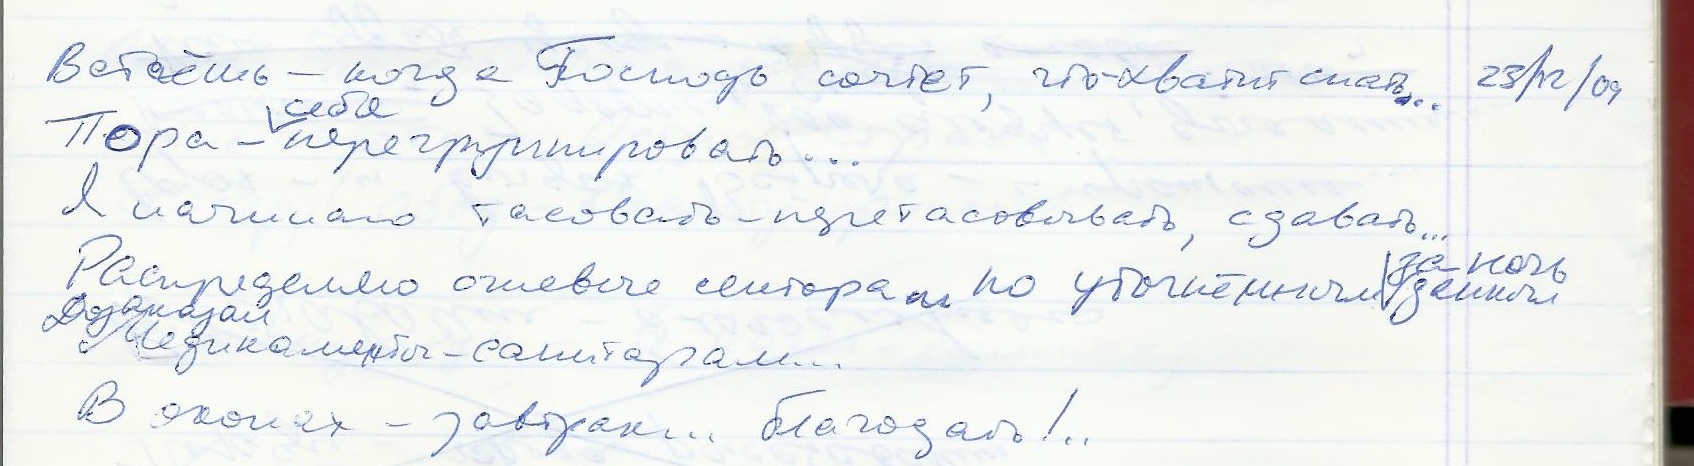 Встаёшь – когда Господь сочтет, что – хватит спать... 23/12/09
Пора – себя перегруппировать...
Я начинаю тасовать – перетасовывать, сдавать...
Распределяю огневые сектора по уточнённым за ночь данным
Дозаказал
Медикаменты – санитарам...
В окопах – завтрак... благодать!..